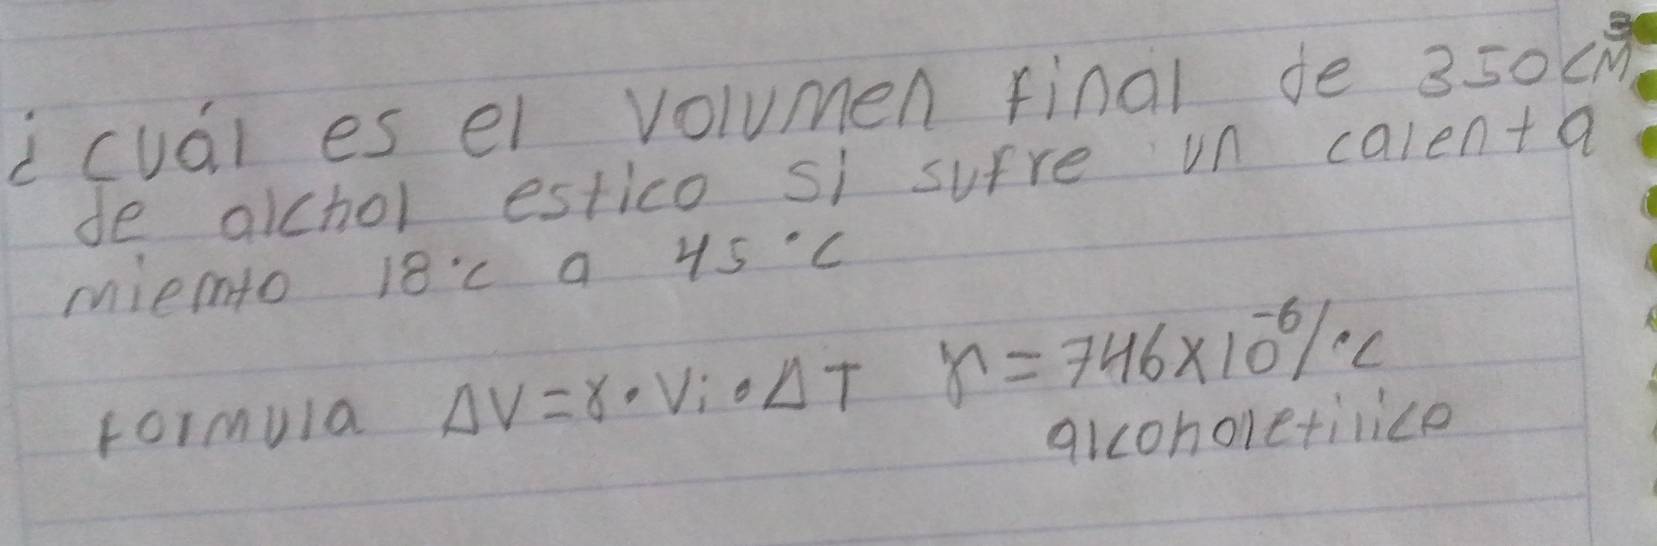 ¿cuál es el volumen final de 350cm³
de alchol estico si sufre un calenta
miemto 18°c a 45°c
formula ΔV=γ·Vi·ΔT γ=746x10⁻⁶/°c
alcoholetilico